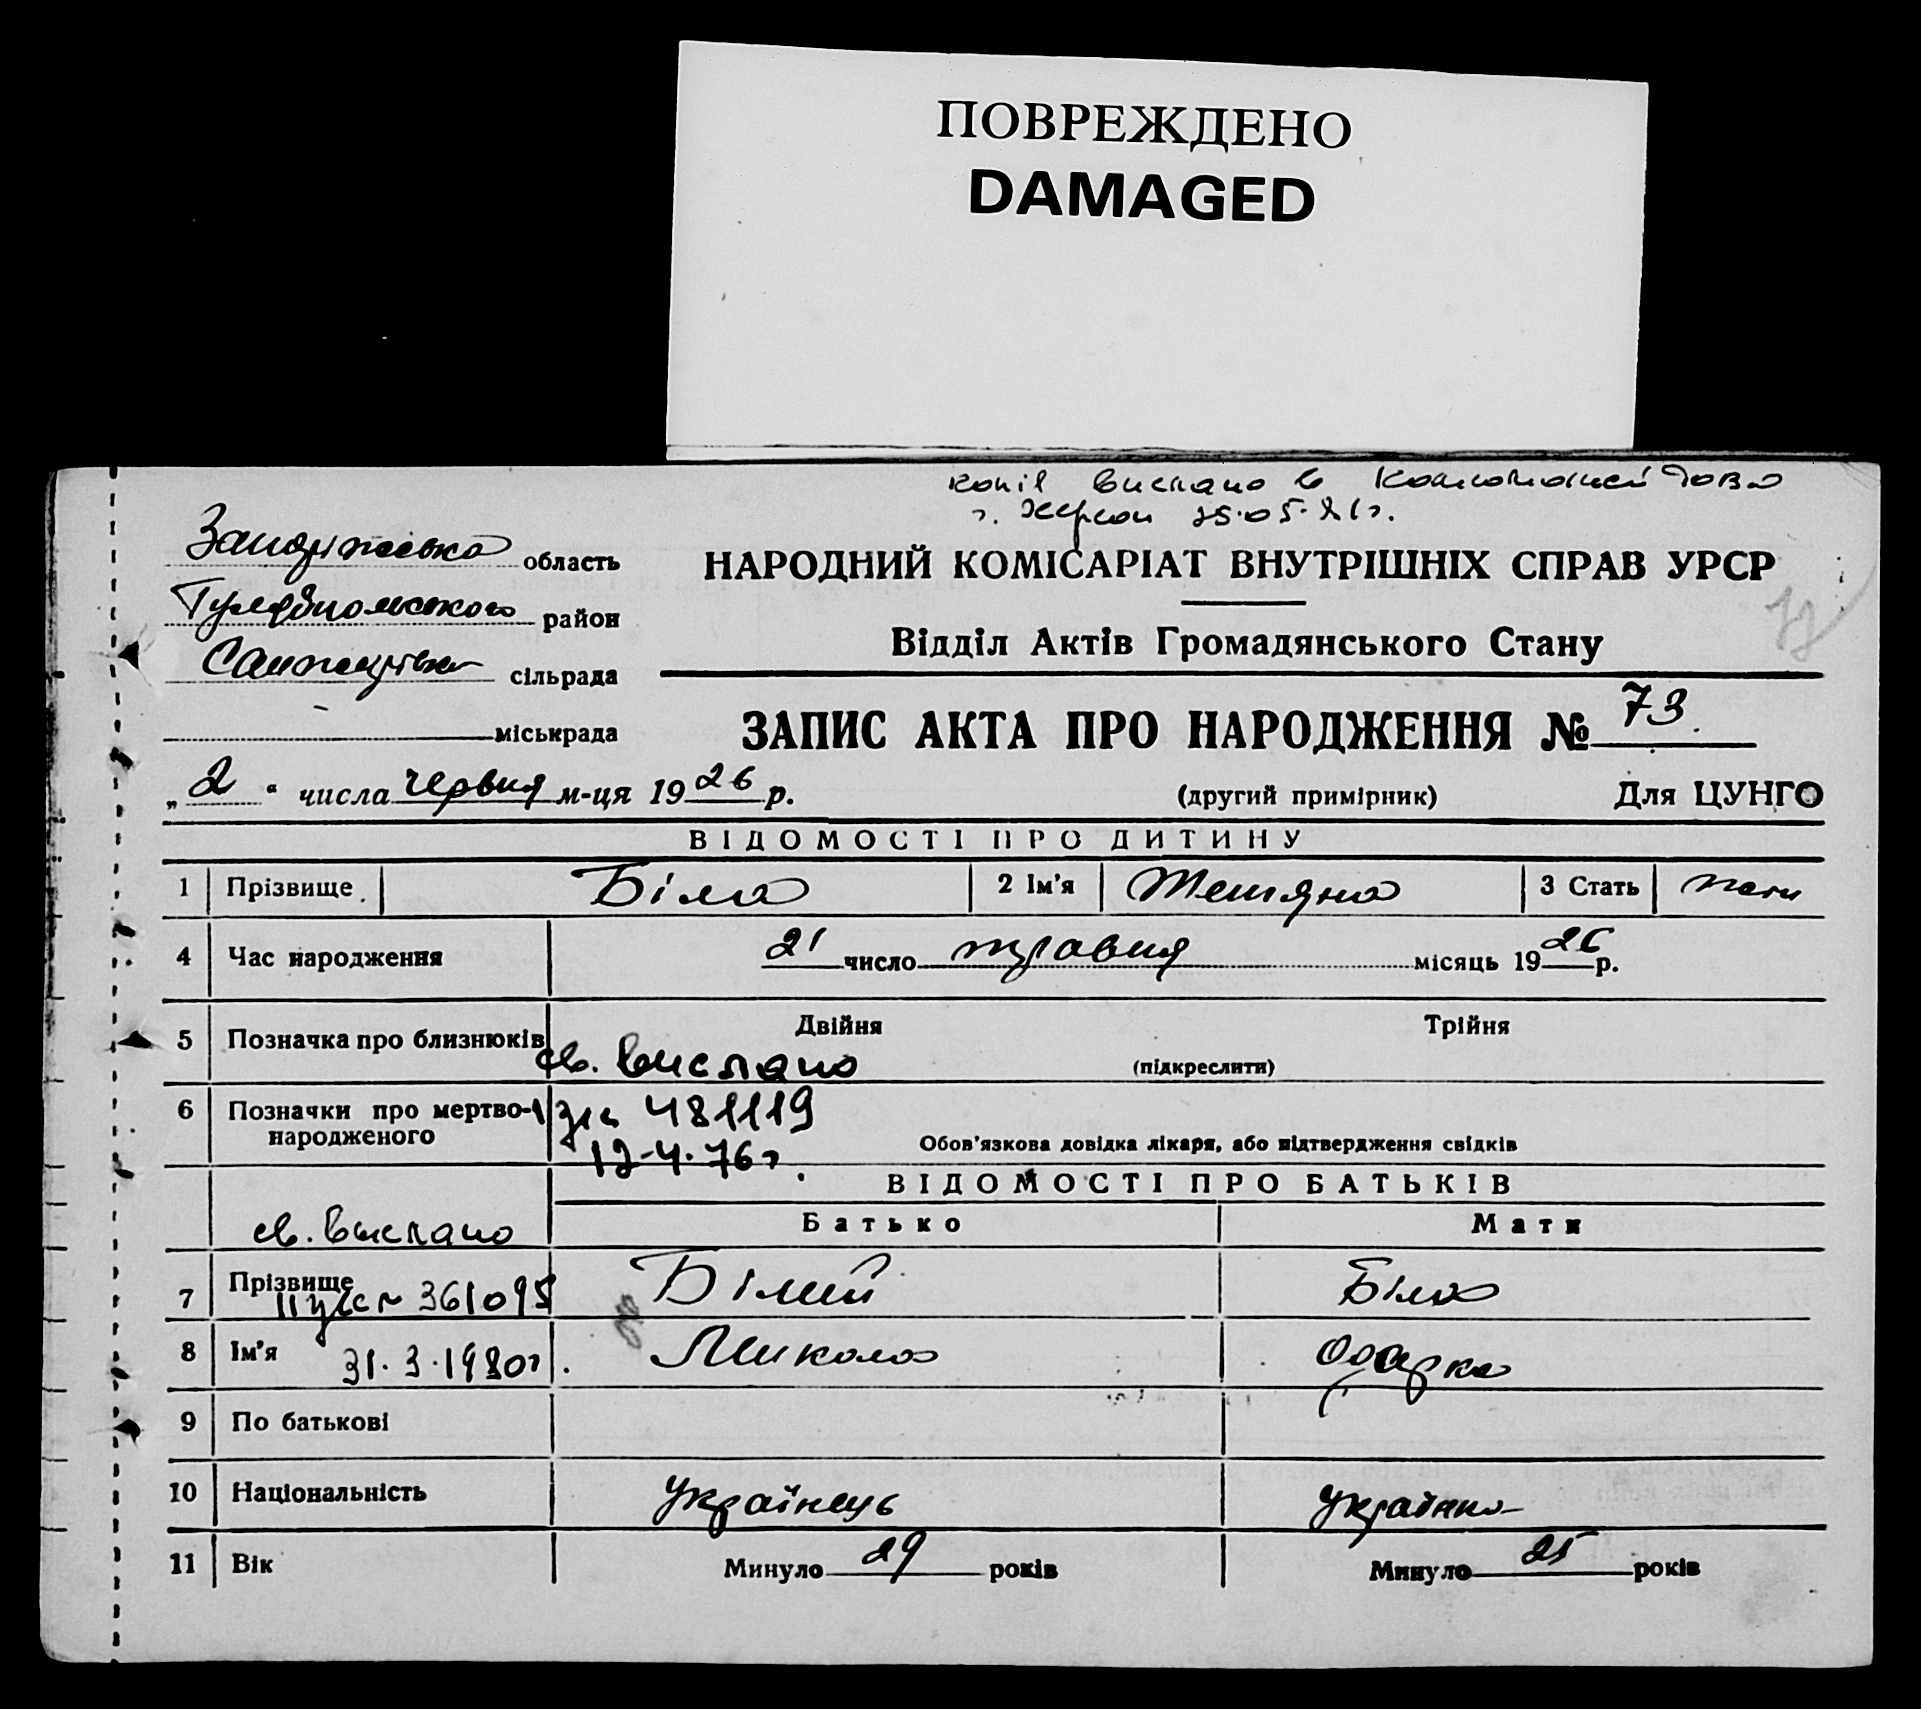 ПОВРЕЖДЕНО
DAMAGED
копія вислано в
г. Херсон 25.05.81г.
Запорізька область
Гуляйпольського район
сільрада
міськрада
НАРОДНИЙ КОМІСАРІАТ ВНУТРІШНІХ СПРАВ УРСР
Відділ Актів Громадянського Стану
ЗАПИС АКТА ПРО НАРОДЖЕННЯ № 73.
„2“ числа червня м-ця 1926 р.
(другий примірник) Для ЦУНГО
ВІДОМОСТІ ПРО ДИТИНУ
1 Прізвище Біла 2 Ім'я Тетяна 3 Стать жін
4 Час народження 21 число травня місяць 1926 р.
5 Позначка про близнюків Двійня Трійня
св. выслано (підкреслити)
6 Позначки про мертвонародженого 481119
12-4.76г.
Обов'язкова довідка лікаря, або підтвердження свідків
ВІДОМОСТІ ПРО БАТЬКІВ
св. выслано Батько Мати
7 Прізвище Білий Біла
№ 361095
8 Ім'я Микола Одарка
31.3.1980г.
9 По батькові
10 Національність Українець Українка
11 Вік Минуло 29 років Минуло 25 років